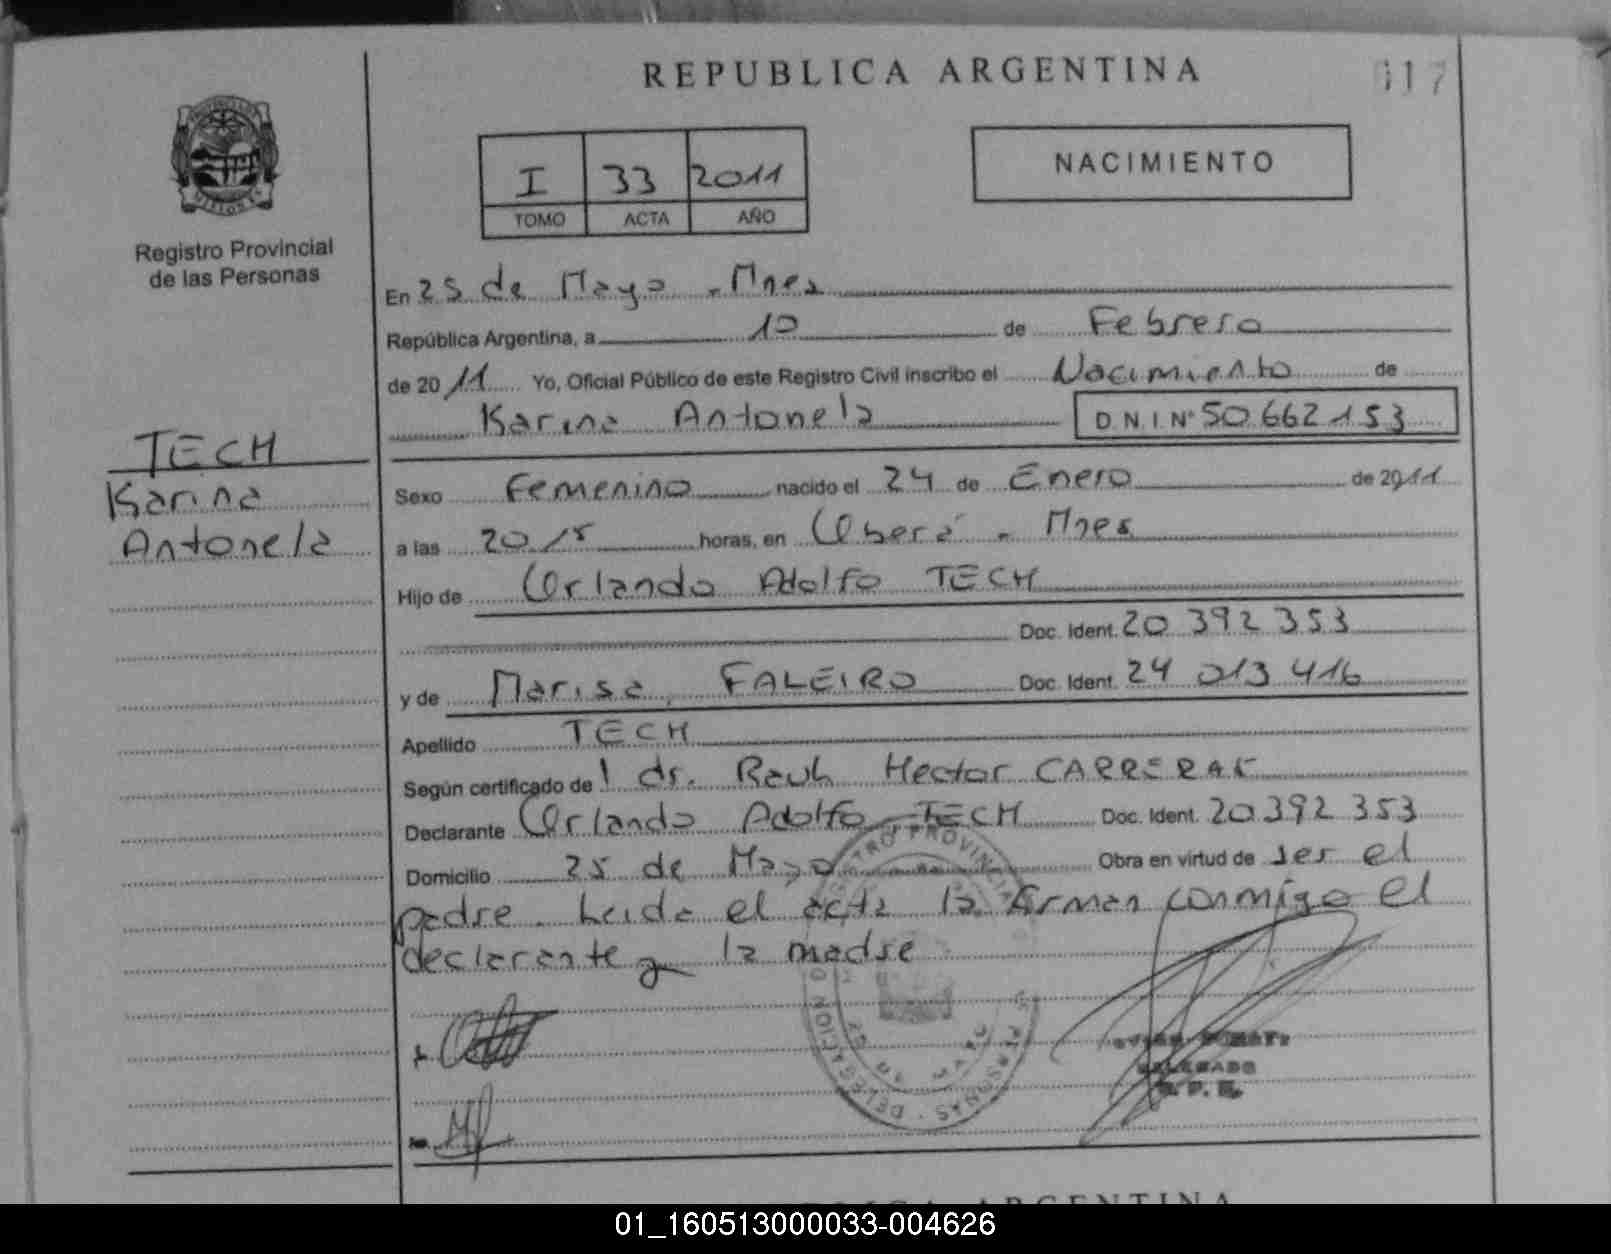 REPUBLICA ARGENTINA
017
I 33 2011
TOMO ACTA AÑO
NACIMIENTO
Registro Provincial
de las Personas
TECH
Karina
Antonela
En 25 de Mayo - Mnes
República Argentina, a 10 de Febrero
de 2011 Yo, Oficial Público de este Registro Civil inscribo el Nacimiento de
Karina Antonela D.N.I. N° 50.662.153
Sexo Femenino nacido el 24 de Enero de 2011
a las 20 15 horas, en Oberá - Mnes
Hijo de Orlando Adolfo TECH
Doc. Ident. 20 392 353
y de Marisa FALEIRO Doc. Ident. 24 013 416
Apellido TECH
Según certificado de l dr. Raul Hector CARRERAS
Declarante Orlando Adolfo TECH Doc. Ident. 20.392 353
Domicilio 25 de Mayo Obra en virtud de ser el
padre. Leida el acta la firman conmigo el
declarante y la madre
DELEGADO
REPUBLICA ARGENTINA
01_160513000033-004626